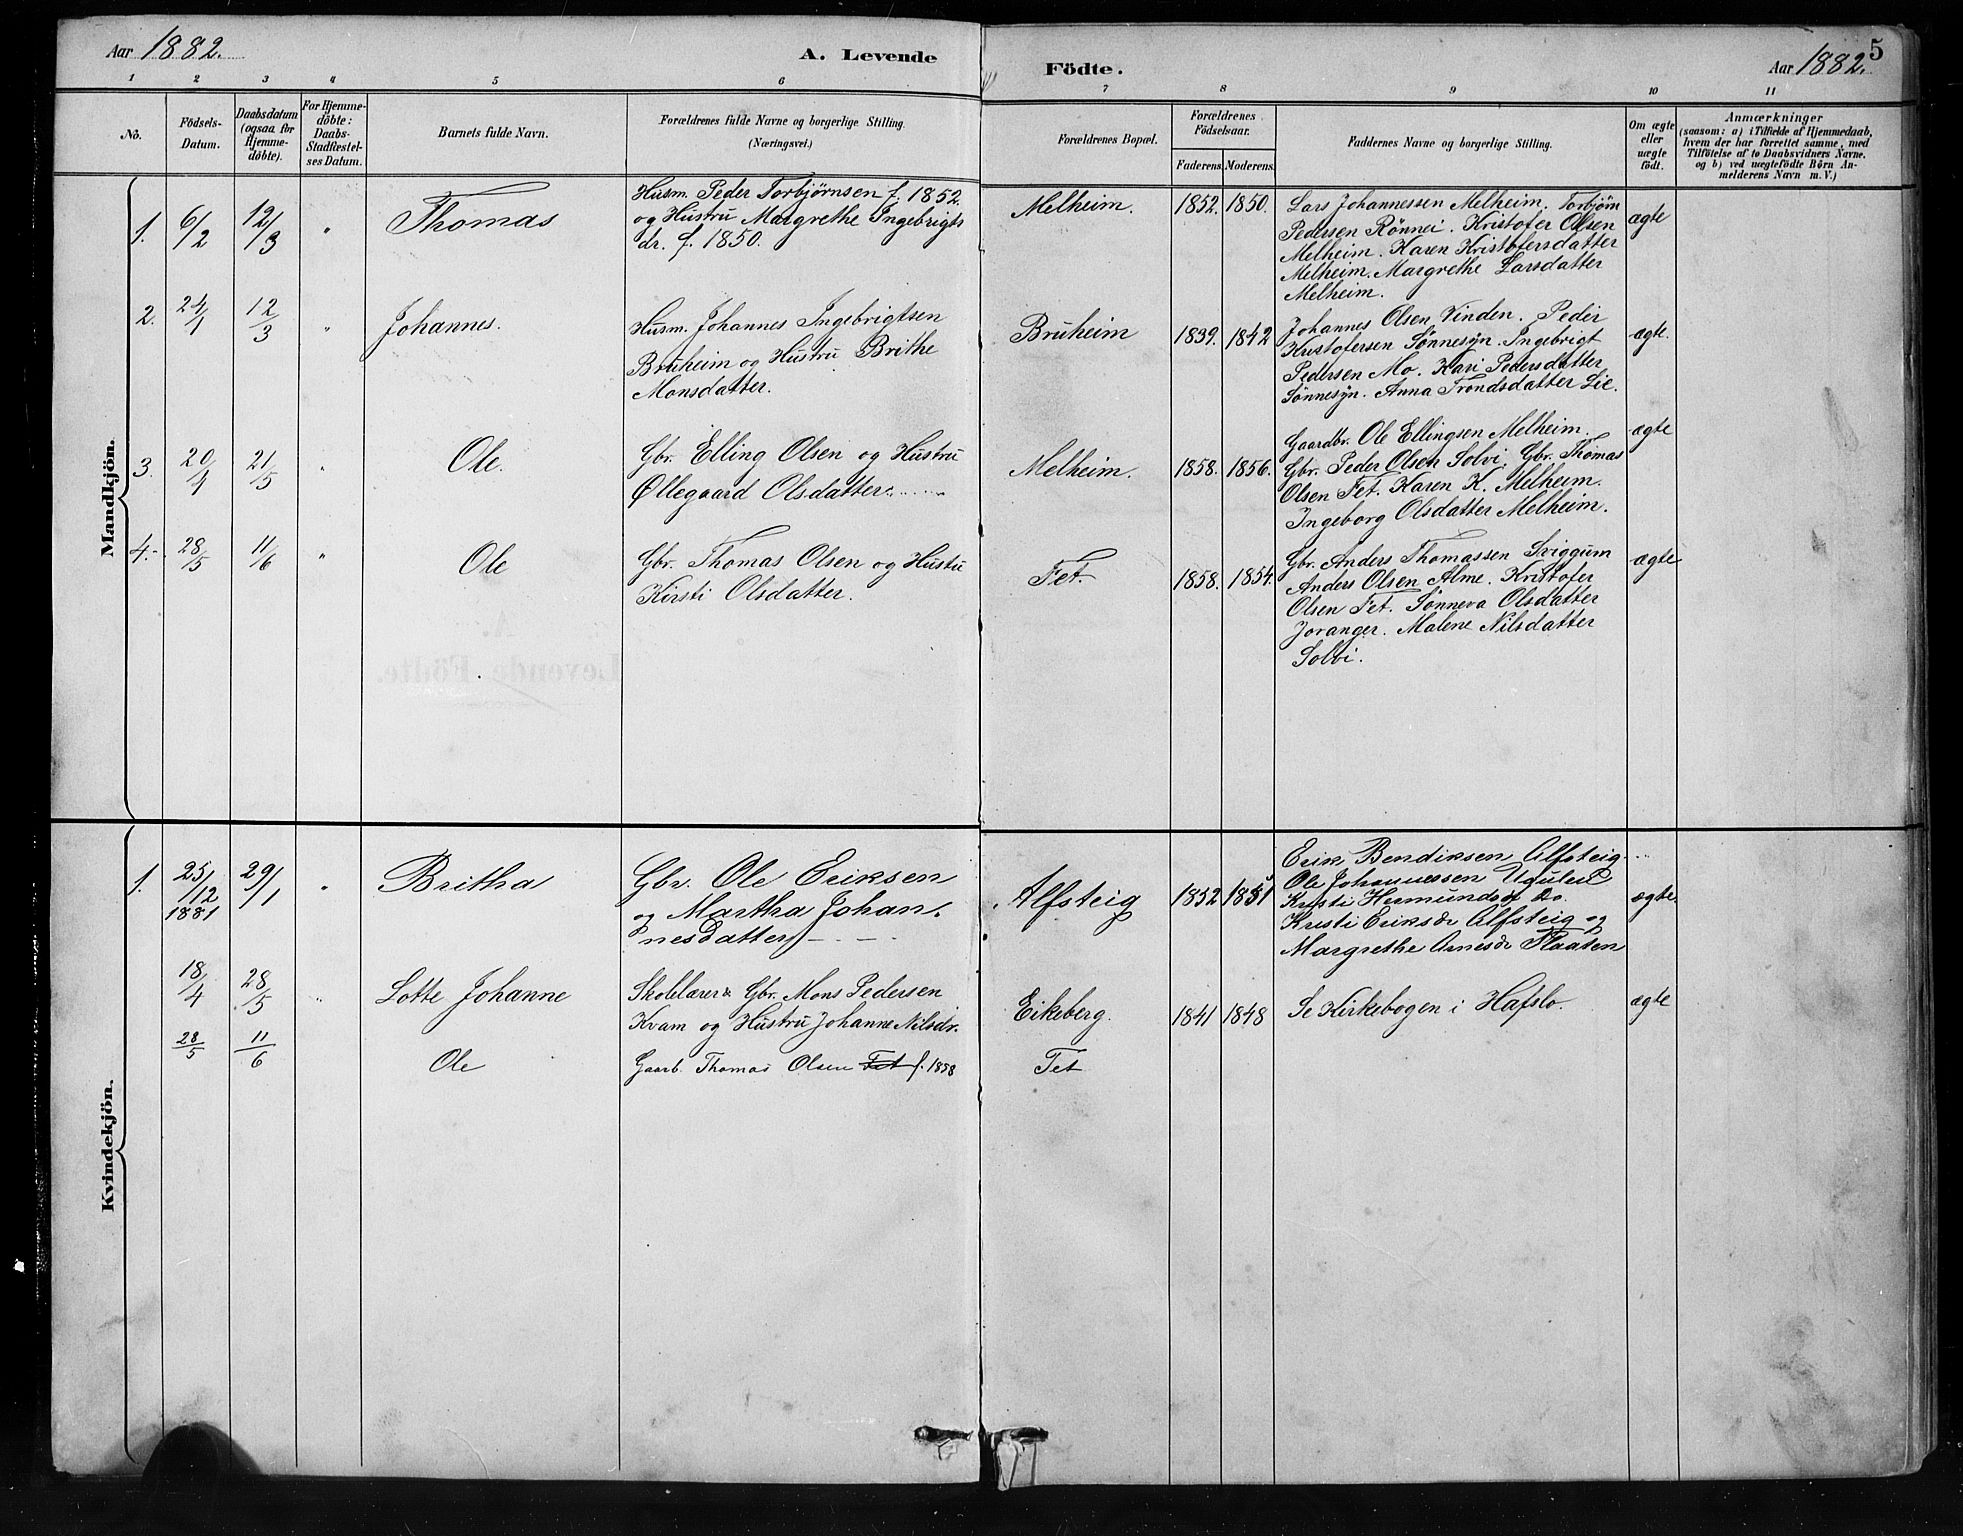 Aar 1882.
A. Levende
Födte.
Aar 1882.
5
1 2 3 4 5 6 7 8 9 10 11
No.
Födsels-
Datum.
Daabsdatum
(ogsaa for
Hjemme-
döbte).
For Hjemme-
döbte:
Daabs-
Stadfæstel-
ses Datum.
Barnets fulde Navn.
Forældrenes fulde Navne og borgerlige Stilling.
(Næringsvei.)
Forældrenes Bopæl.
Forældrenes
Födselsaar.
Faderens. Moderens.
Faddernes Navne og borgerlige Stilling.
Om ægte
eller
uægte
födt.
Anmærkninger
(saasom: a) i Tilfælde af Hjemmedaab,
hvem der har forrettet samme, med
Tilföielse af to Daabsvidners Navne,
og b) ved uægtefödte Börn An-
melderens Navn m. V.)
Mandkjön.
1. 6/2 12/3 " Thomas
Husm. Peder Torbjørnsen f. 1852.
og Hustru Margrethe Ingebrigts
dr. f. 1850.
Melheim. 1852. 1850.
Lars Johannessen Melheim. Torbjörn
Pedersen Rönnei. Kristofer Olsen
Melheim. Karen Kristofersdatter
Melheim. Margrethe Larsdatter
Melheim.
ægte
2. 24/1 12/3 " Johannes.
Husm. Johannes Ingebrigtsen
Bruheim og Hustru Brithe
Monsdatter.
Bruheim 1839. 1842
Johannes Olsen Vinden. Peder
Kristofersen Sønnesyn. Ingebrigt
Pedersen Mo. Kari Pedersdatter
Sønnesyn. Anna Trondsdatter Lie.
ægte.
3. 20/4 21/5 " Ole.
Gbr. Elling Olsen og Hustru
Øllegaard Olsdatter.
Melheim. 1858. 1856.
Gaardbr. Ole Ellingsen Melheim.
Gbr. Peder Olsen Solvi. Gbr. Thomas
Olsen Fet. Karen K. Melheim.
Ingeborg Olsdatter Melheim.
ægte
4. 28/5 11/6 " Ole
Gbr. Thomas Olsen og Hustru
Kirsti Olsdatter.
Fet. 1858. 1854.
Gbr. Anders Thomassen Sviggum
Anders Olsen Alme. Kristofer
Olsen Fet. Sønneva Olsdatter
Joranger. Malene Nilsdatter
Solvi.
ægte
Kvindekjön.
1. 25/12 1881 29/1 " Britha
Gbr. Ole Eriksen
og Martha Johan-
nesdatter
Alfsteig 1852 1851
Erik Bendiksen Alfsteig
Ole Johannessen Ugulen
Kristi Hermundsdr Do.
Kristi Eriksdr Alfsteig og
Margrethe Arnesdr Flaaten
ægte.
18/4 28/5 " Lotte Johanne
Skolelærer & Gbr. Mons Pedersen
Kvam og Hustru Johanne Nilsdr.
Eikeberg. 1841 1848
Se Kirkebogen i Hafslo.
ægte
28/5 11/6 Ole
Gaarb. Thomas Olsen Fet f. 1858
Fet
A.
Levende Födte.